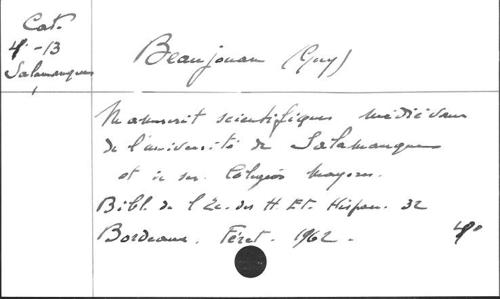 Cat.
4°-13
Salamanques
Beaujouan (Guy)
Manuscrit scientifiques médiévaux
de l'université de Salamanque
et de ses Colegios mayores.
Bibl. de l'Ec. des H Et. Hispan. 32
Bordeaux. Féret. 1962.
4°